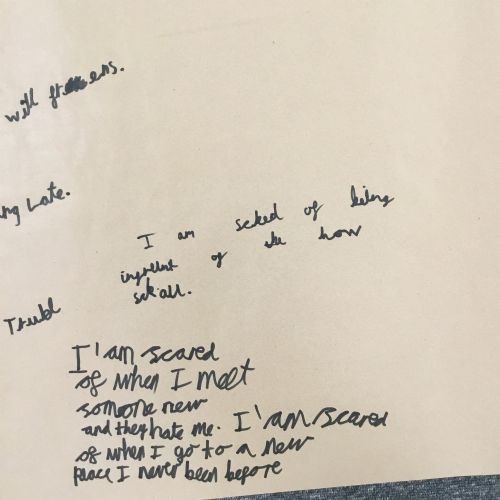 with
ng Late.
I am scked of being
of the how
Trubl
I'am scared
of when I meet
someone new
and they hate me. I'am scared
of when I go to a new
place I never been before